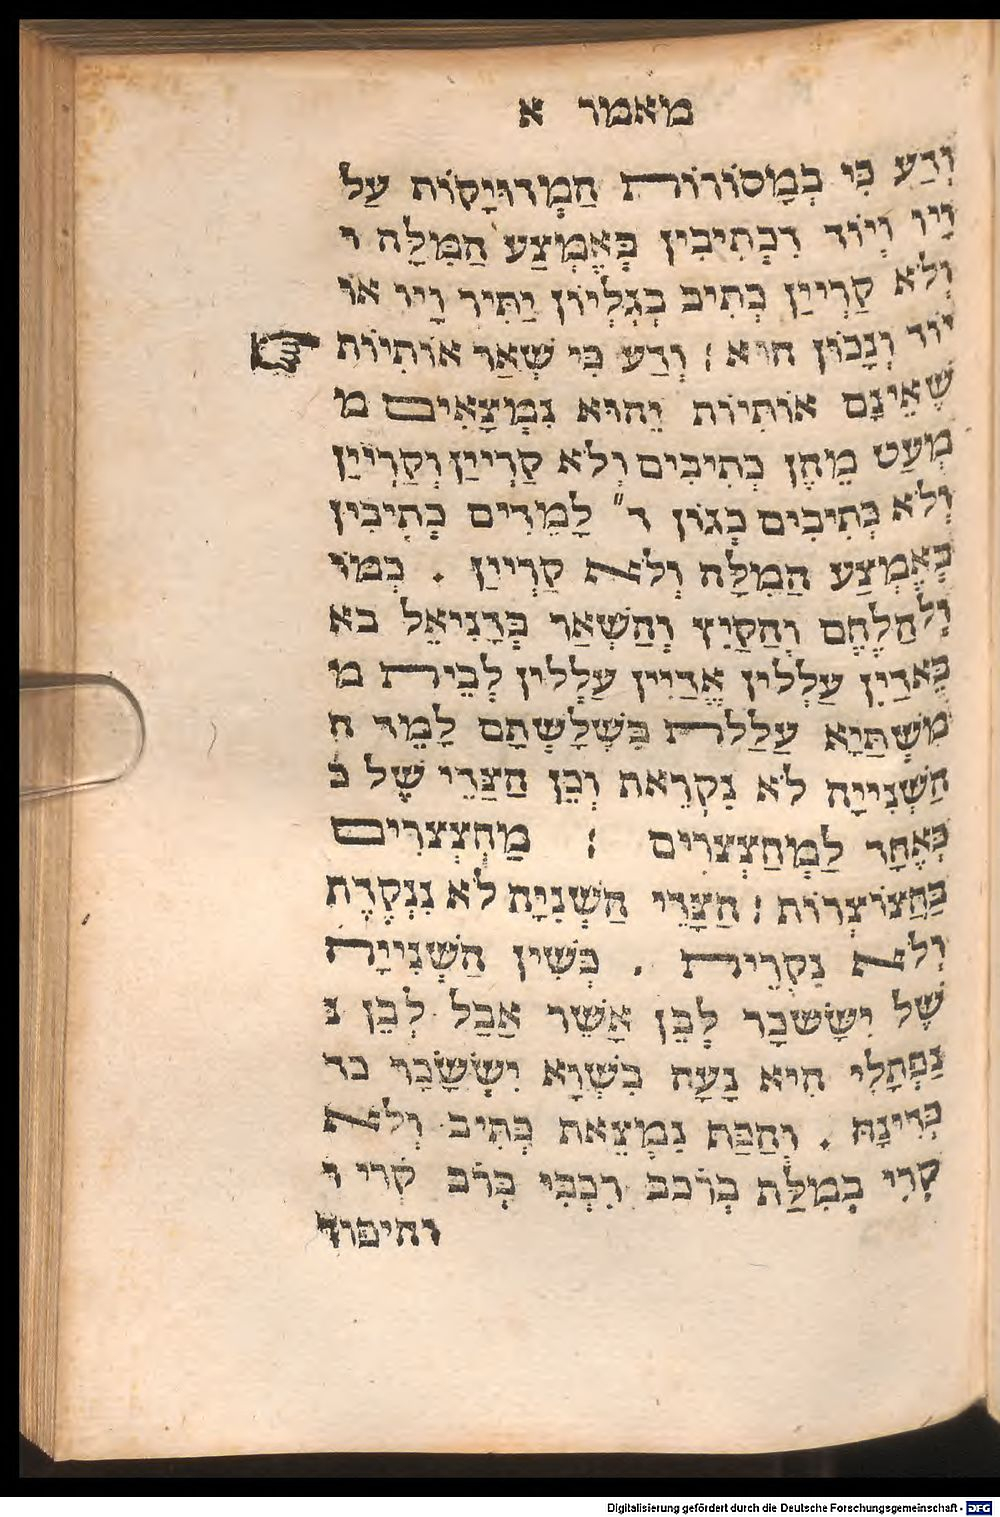 מאמר א
וְדַע כִּי בְּמָסוֹרוֹת הַמְדוּיָקוֹת עַל
וָיו וְיוֹד דִכְתִיבִין בְּאֶמְצַע הַמִלָּה ו
וְלֹא קַרְיַין כְּתִיב בְּגִלְיוֹן יַתִּיר וָיו אוֹ
יוֹד וְנָכוֹן הוּא : וְדַע כִּי שְׁאַר אוֹתִיוֹת
שֶׁאֵינָם אוֹתִּיוֹת יֵהוּא נִמְצָאִים מ
מְעַט מֵהֶן כְּתִיבִים וְלֹא קַרְיַין וְקַרְיַין
וְלֹא כְּתִיבִים כְּגוֹן ד״ לָמֵדִים כְּתִיבִין
בְּאֶמְצַע הַמִלָּה וְלֹא קַרְיַין . כְּמוֹ
וְלַחְלֶחֶם וְחַקָיִץ וְהַשְׁאַר בְּדָנִיאֵל בא
בֶּאדַיִן עַלְלִין אֱדַיִין עַלְלִין לְבֵית מ
מִשְׁתַּיָא עַלְלַת בִּשְׁלָשְׁתָם לָמֵד ה
הַשְׁנִייָה לֹא נִקְרֵאת וְכֵן הַצַּדִי שֶׁל בּ
בְּאֶחָד לַמְחַצְצְרִים : מַחְצְצרִים
בַּחֲצוֹצְרוֹת : הַצָּדֵי הַשְׁנִיָה לֹא נִנְקֶדֶת
וְלֹא נִקְרֵית . כְּשִׁין הַשְׁנִייָה
שֶׁל יִשָׂשכָר לְבֶן אָשֵׁר אֲבָל לְבֶן נ
נַפְתָּלִי הִיא נָעָה בִּשְׁוָא יִשְׂשָׂכָר כד
כְּדִינָהּ . וְהַבֵּת נִמְצֵאת כְּתִיב וְלֹא
קְרִי בְּמִלַּת בְּרֹכֵב רִכְבִּי בְּרֹב קרי ו
והיפוך
Digitalisierung gefördert durch die Deutsche Forschungsgemeinschaft - DFG